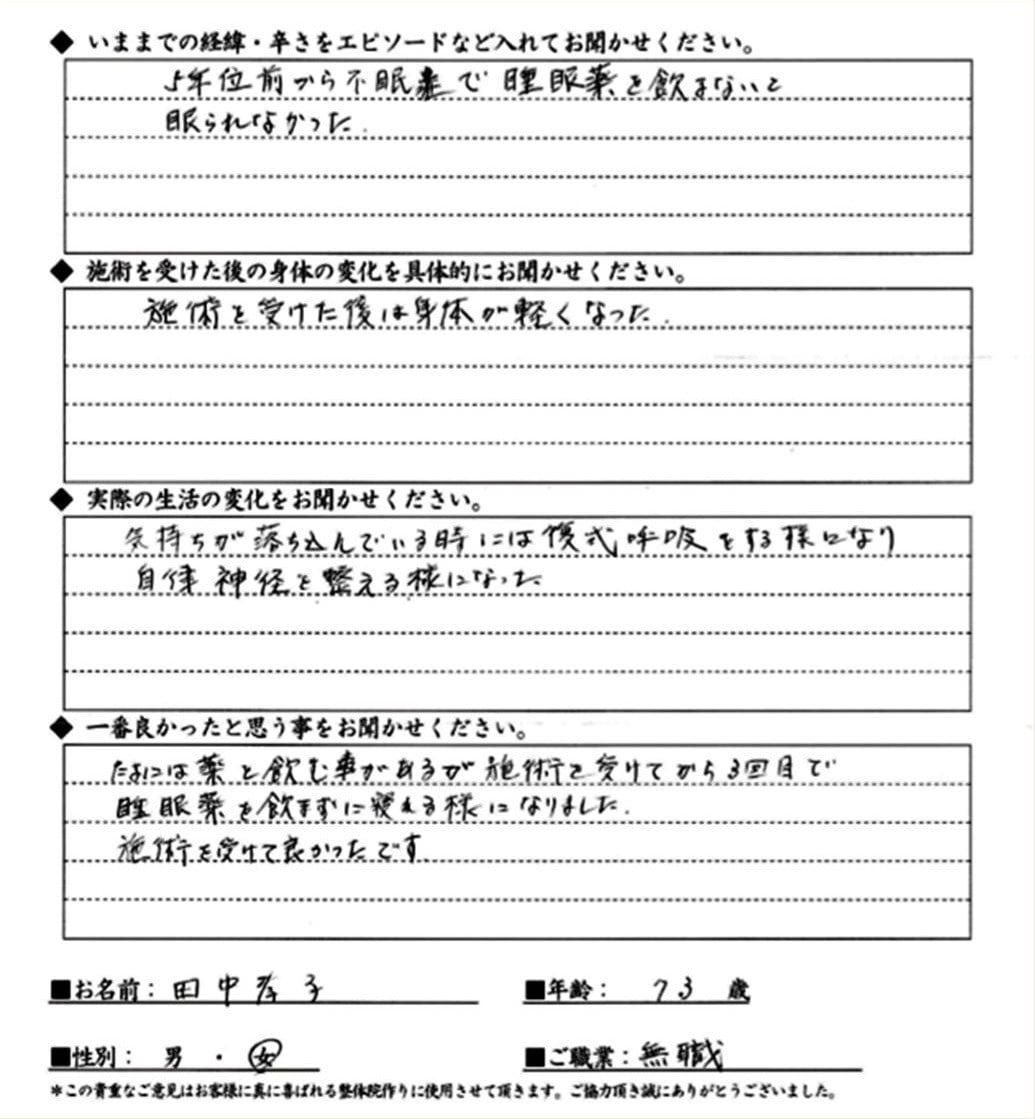 ◆ いままでの経緯・辛さをエピソードなど入れてお聞かせください。
5年位前から不眠症で睡眠薬を飲まないと
眠られなかった.
◆ 施術を受けた後の身体の変化を具体的にお聞かせください。
施術を受けた後は身体が軽くなった.
◆ 実際の生活の変化をお聞かせください。
気持ちが落ち込んでいる時には復式呼吸をする様になり
自律神経を整える様になった
◆ 一番良かったと思う事をお聞かせください。
たまには薬を飲む事があるが施術を受けてから3回目で
睡眠薬を飲まずに寝える様になりました.
施術を受けて良かったです.
■お名前：田中孝子
■年齢：73歳
■性別：男・女
■ご職業：無職
＊この貴重なご意見はお客様に真に喜ばれる整体院作りに使用させて頂きます。ご協力頂き誠にありがとうございました。